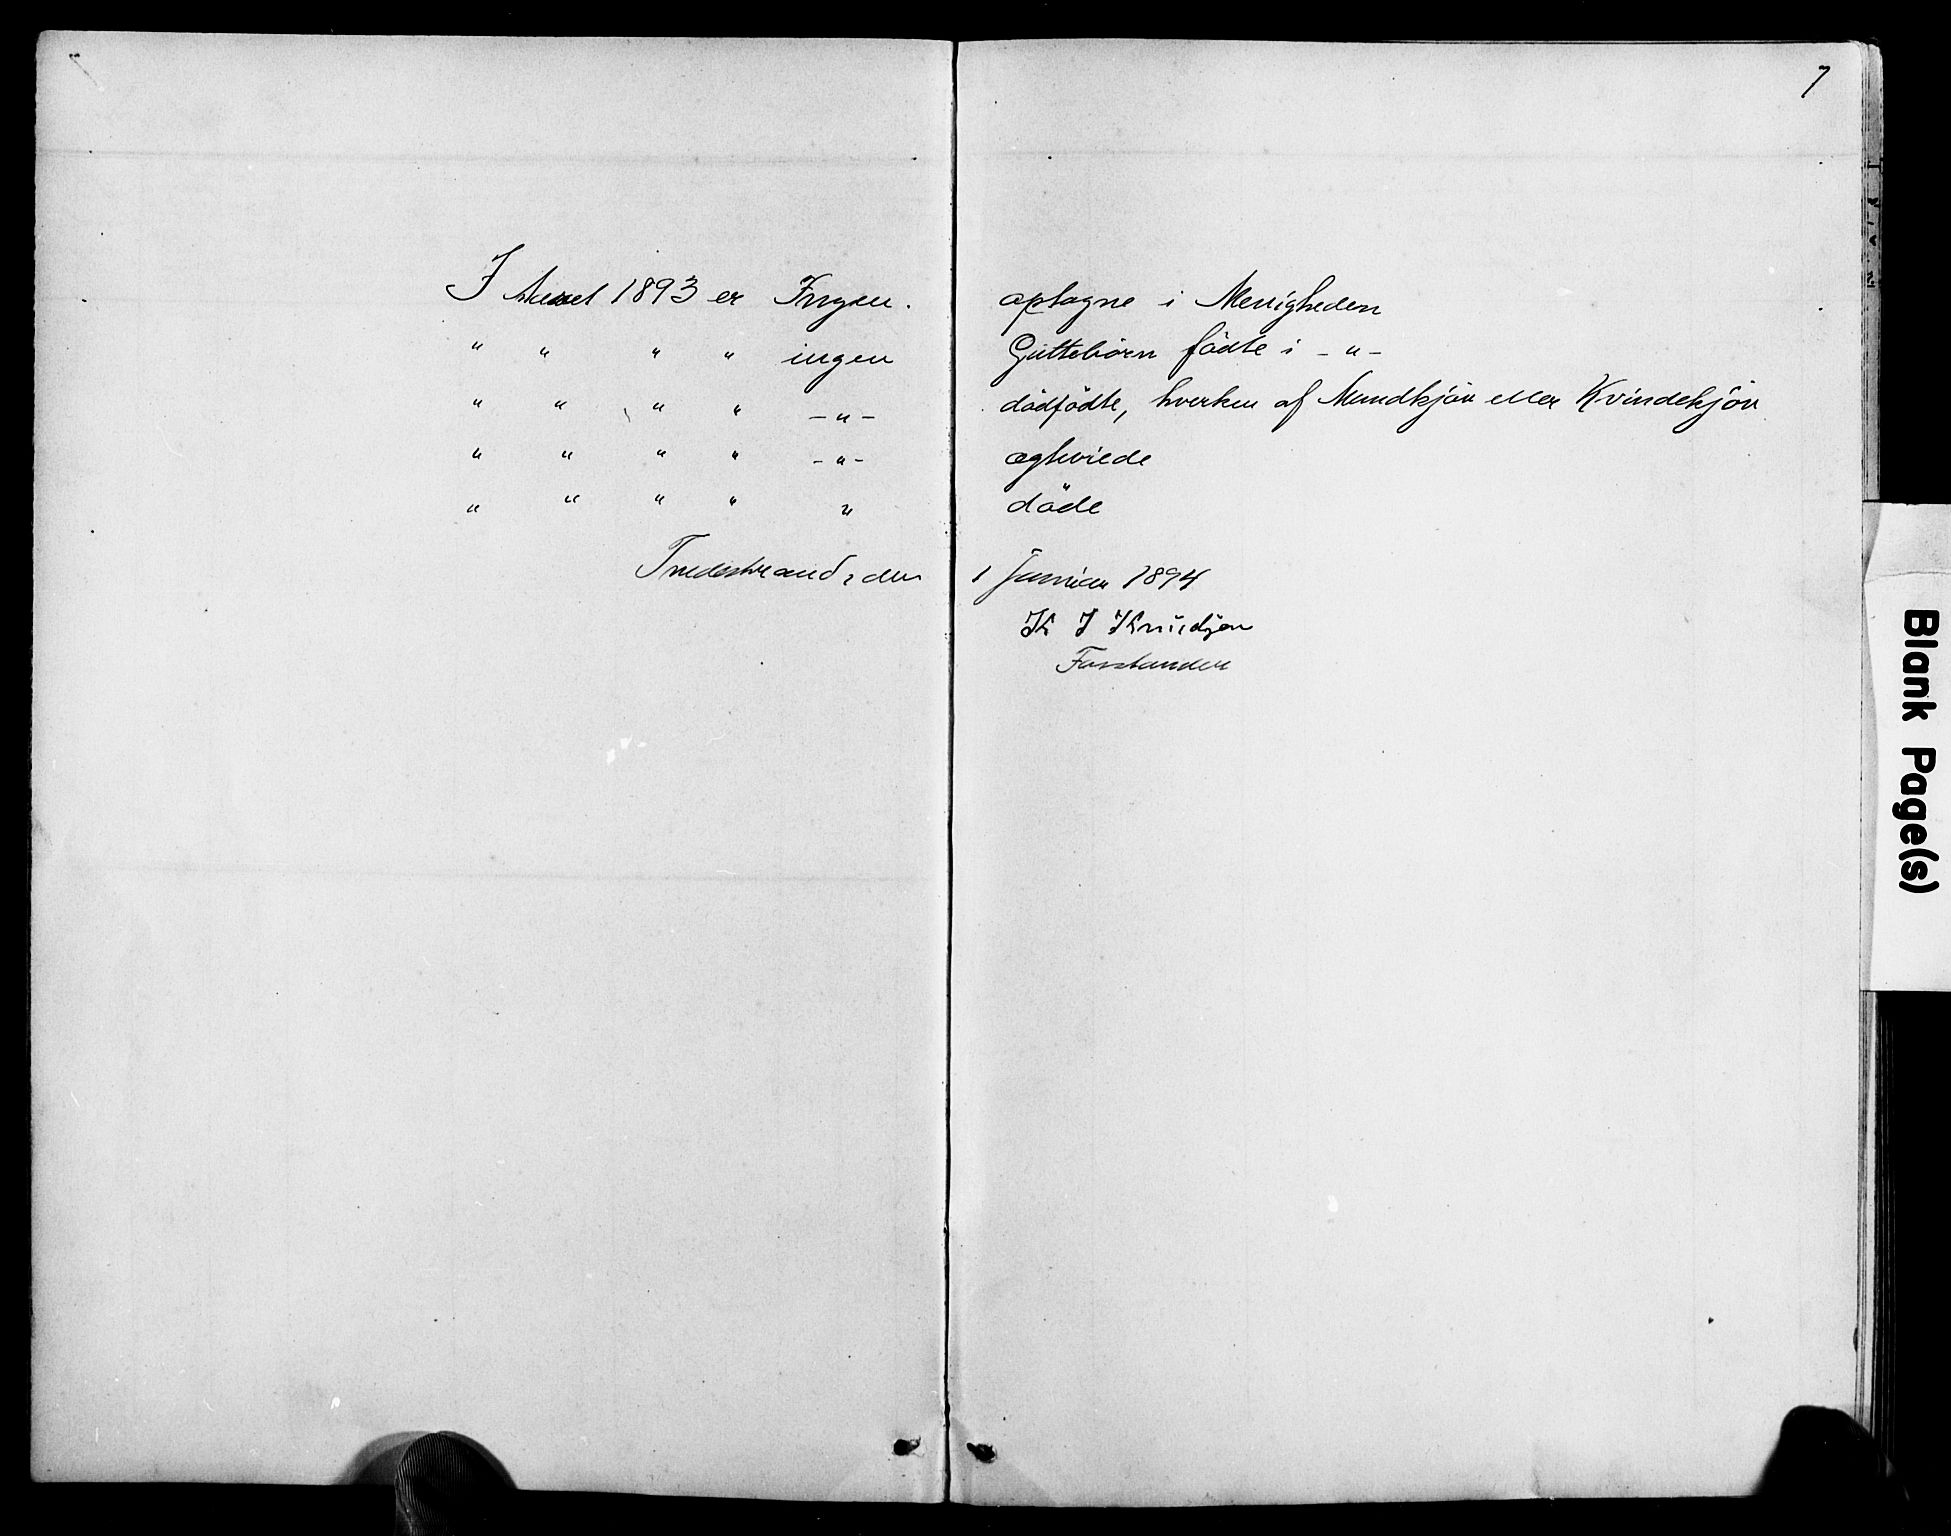 7
I Aaret 1893 er Ingen. optagne i Menigheden
" " " " ingen Guttebörn födte i - " -
" " " " - " - dödfödte, hverken af Mandkjön eller Kvindekjön
" " " " - " - ægteviede
" " " " " döde
Tvedestrand, den 1 Januar 1894
K J Knudsen
Forstander
Blank Page(s)